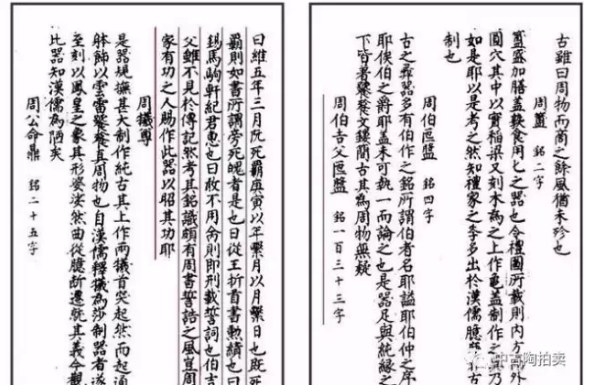 古雖曰周物而商之餘風猶未殄也
周簠 銘二字
簠盛加膳簋
常膳皆用匕之器也今禮圖所載則內方而外
圓穴其中以實稻粱又刻木為之上作龜蓋制作之真乃
如是耶以是考之然知禮家之李多出於漢儒臆
古
制也
周伯匜盤 銘四字
古之彝器多有伯作之銘所謂伯者名耶謚耶伯仲之序
耶侯伯之爵耶蓋未可執一而論之也是器足與純緣之
下皆著饕餮文鏤簡古其為周物無疑
周伯吉父匜盤 銘一百三十三字
曰維五年三月既死霸庚寅以年繫月以月繫日也既死
霸則如書所謂旁死魄者是也曰從王折首書勳績也曰
錫馬駒軒紀君惠也曰敢不用令則即刑載誓詞也伯吉
父雖不見於傳記然考其銘識頗有周書誓誥之風宣周
家有功之人賜作此器以昭其功耶
周犧尊
是器規撫甚大制作純古其上作兩犧首突起然而起通
體飾以雲雷饕餮真周物也自漢儒釋犧為莎制器者遂
至刻以鳳皇之象其形婆娑然曲從臆斷遷就其義今觀
比器知漢儒為陋矣
周公命鼎 銘二十五字
中古陶拍卖